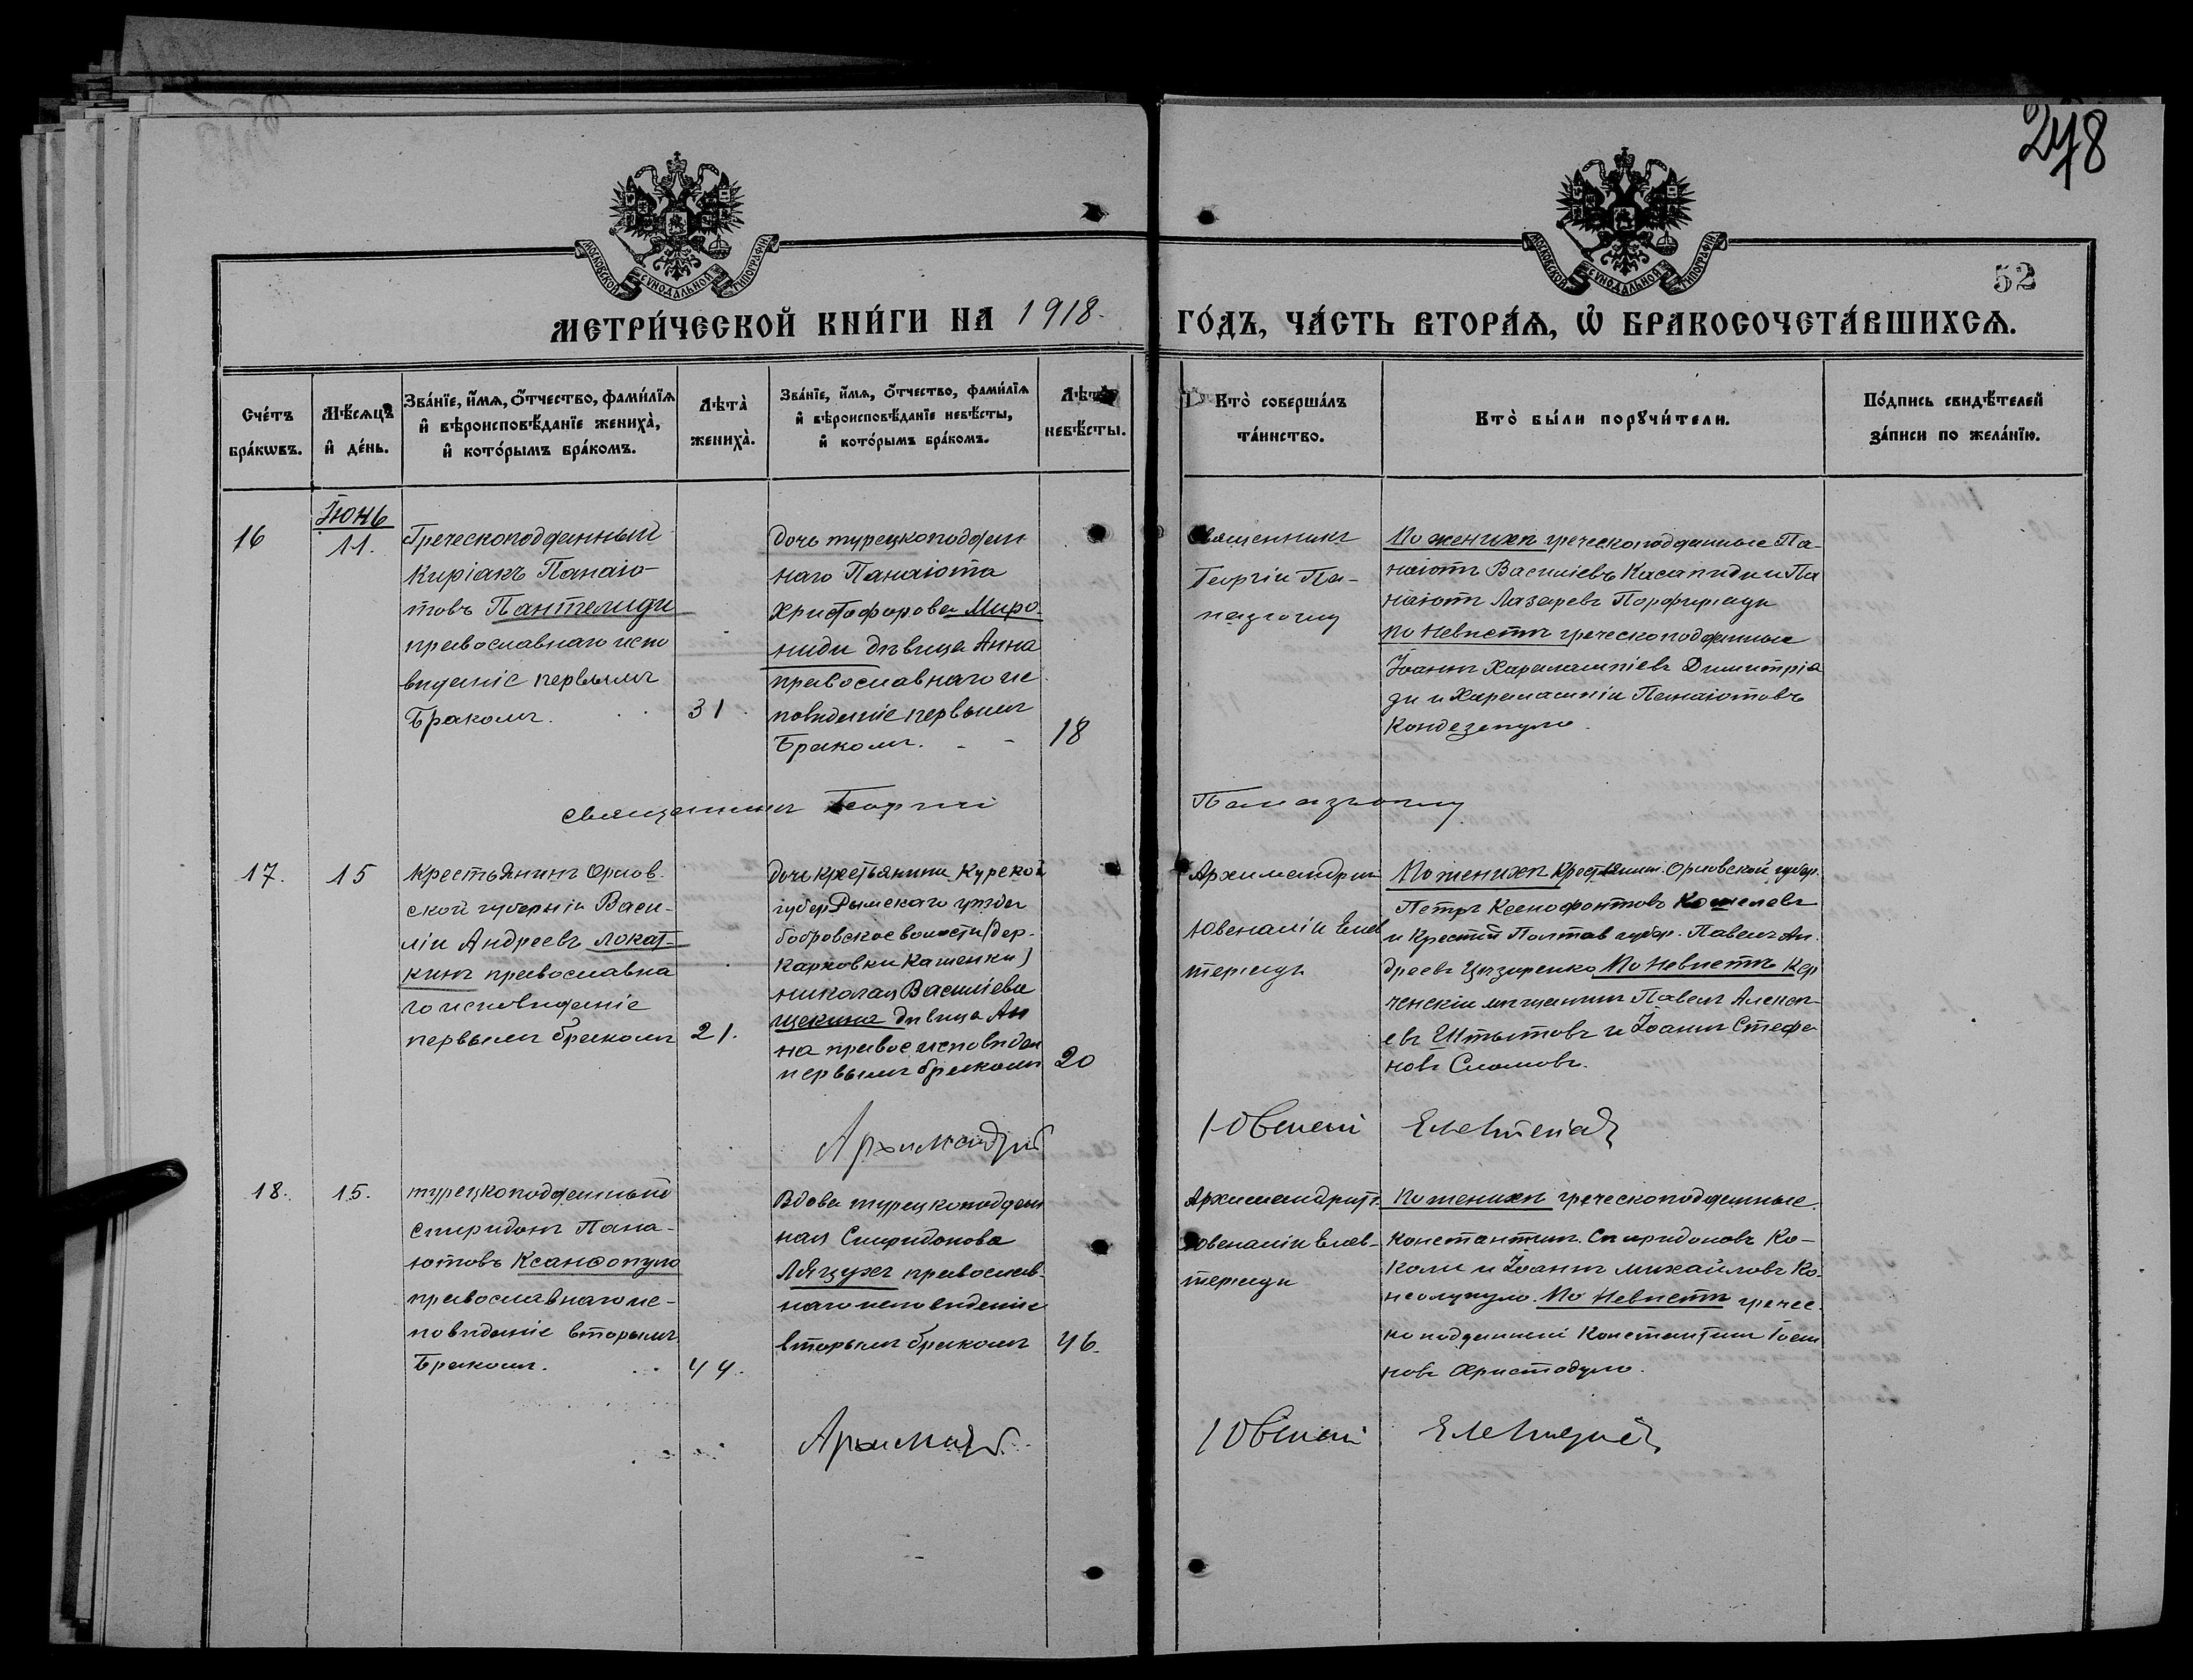 278
52
МОСКОВСКОЙ СѴНОДАЛЬНОЙ ТИПОГРАФІИ
МОСКОВСКОЙ СѴНОДАЛЬНОЙ ТИПОГРАФІИ
МЕТРИ́ЧЕСКОЙ КНИ́ГИ НА 1918. ГО́ДЪ, ЧА́СТЬ ВТОРА́Ѧ, Ѡ҆ БРАКОСОЧЕТА́ВШИХСѦ.
Сче́тъ бра́кѡвъ.
Мѣ́сяцъ и҆ де́нь.
Зва́нїе, и҆́мѧ, ѻ҆́тчество, фамѝлїѧ и҆ вѣроисповѣ́данїе жениха̀, и҆ кото́рымъ бра́комъ.
Лѣта̀ жениха̀.
Зва́нїе, и҆́мѧ, ѻ҆́тчество, фамѝлїѧ и҆ вѣроисповѣ́данїе невѣ́сты, и҆ кото́рымъ бра́комъ.
Лѣта̀ невѣ́сты.
Кто̀ соверша́лъ та́инство.
Кто̀ бы́ли порꙋчи́тели.
По́дпись свидѣ́телей за́писи по жела́нїю.
16
Іюнь
11.
Греческоподданный
Киріакъ Панаіо-
товъ Пантелиди
православнаго испо
вѣданіе первымъ
Бракомъ.
31
Дочь турецкоподдан
наго Панаіота
Христофорова Миро
ниди дѣвица Анна
православнаго ис
повѣданіе первымъ
Бракомъ.
18
Священникъ
Георгіи Па-
пазоглу
По женихѣ греческоподданные Па-
наіотъ Василіевъ Касапиди и Па
наіотъ Лазаревъ Порфиріади
По Невѣстѣ греческоподданные
Іоаннъ Харалампіевъ Димитріа
ди и Харалампіи Панаіотовъ
Священникъ Георгіи
Папазоглу
17.
15
Крестьянинъ Орлов-
ской губерніи Васи-
ліи Андреевъ Локат-
кинъ православна
го исповѣданіе
первымъ бракомъ
21.
Дочь крестьянина Курской
губер Рыльскаго уѣзда
бобровское волости (дер.
Николая Василіева
Щекина дѣвица Ан
на правос исповѣдан
первымъ бракомъ
20
Архимандрит
Ювеналіи Елев
теріади
По женихѣ Крестьянин. Орловской губер.
Петръ Ксенофонтовъ Кошелевъ
и Крестій Полтав губер. Павелъ Ан.
По Невѣстѣ Кер
ченскіи мѣщанинъ Павелъ Алексѣ-
евъ и Іоаннъ Стефа
новъ
Архимандрит
Ювеналі
18.
15.
турецкоподданный
Спиридонъ Пана-
іотовъ Ксандопуло
православнаго ис-
повѣданіе вторымъ
Бракомъ.
44.
Вдова турецкоподдан
ная Спиридонова
православ-
наго исповѣданіе
вторымъ бракомъ
46.
Архимандритъ
Ювеналіи Елев-
теріади
По женихѣ греческоподданные.
Константин. Спиридоновъ Ко-
коли и Іоаннъ Михайловъ Ко-
По Невѣстѣ гречес-
коподданныі Константин Іоан
новъ Христодуло.
Архимандрит
Ювеналі